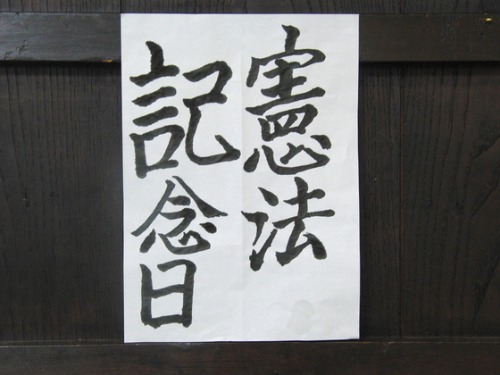 憲法
記念日